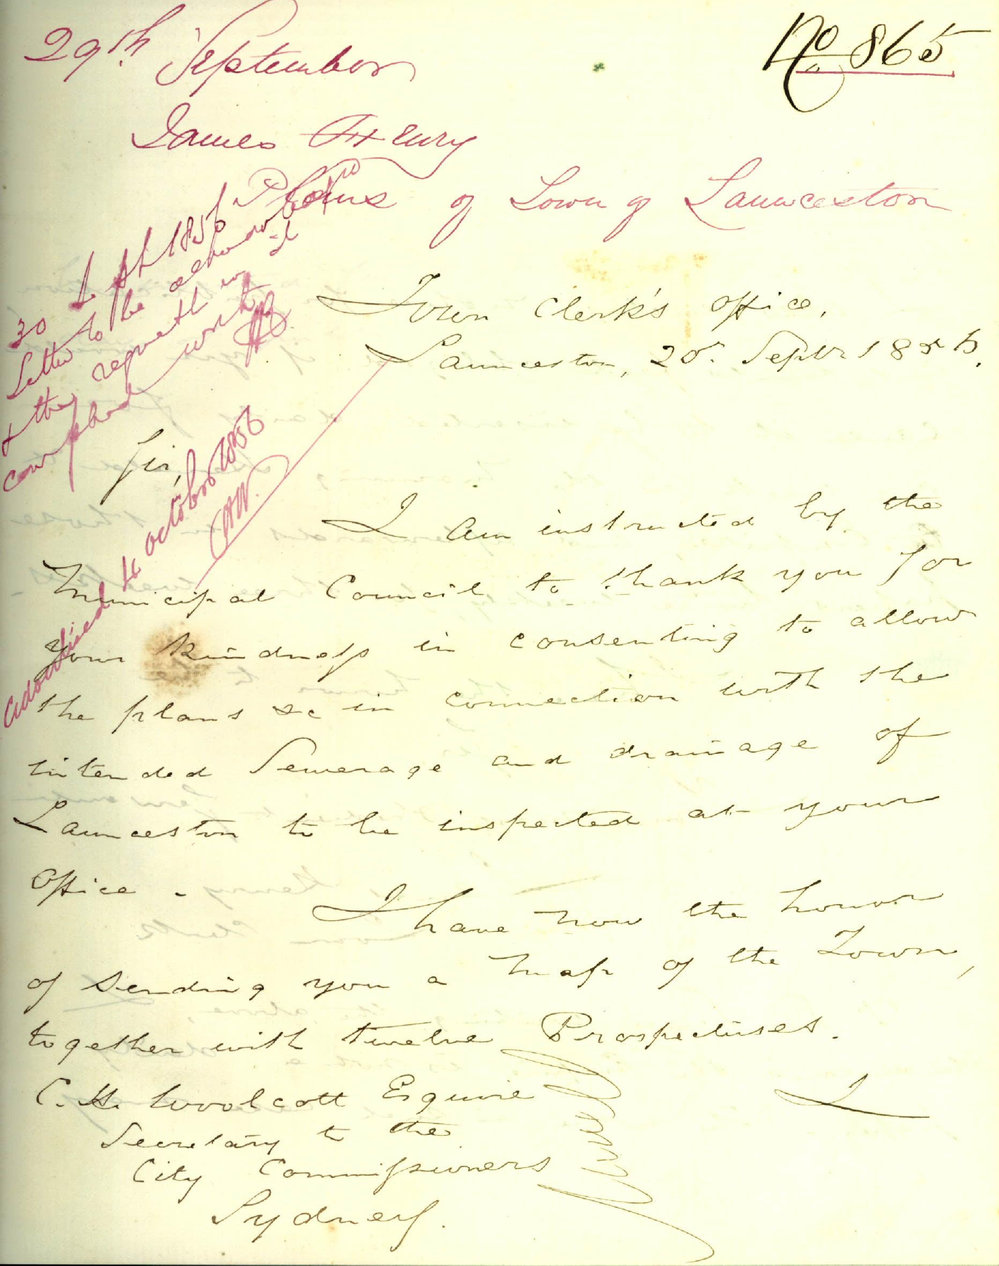 No. 865
29th September
James Henry
Plans of Town of Launceston
30 Sept 1856
Letter to be acknowledged
& the request in it
complied with
HB
advertised 4 October 1856
Town Clerk's Office,
Launceston, 20th Septr 1856.
Sir,
I am instructed by the
Municipal Council to thank you for
your kindness in consenting to allow
the plans &c in connection with the
intended Sewerage and drainage of
Launceston to be inspected at your
office.
I have now the honor
of sending you a Map of the Town,
together with twelve Prospectuses.
I
C. H. Woolcott Esquire
Secretary to the
City Commissioners
Sydney.